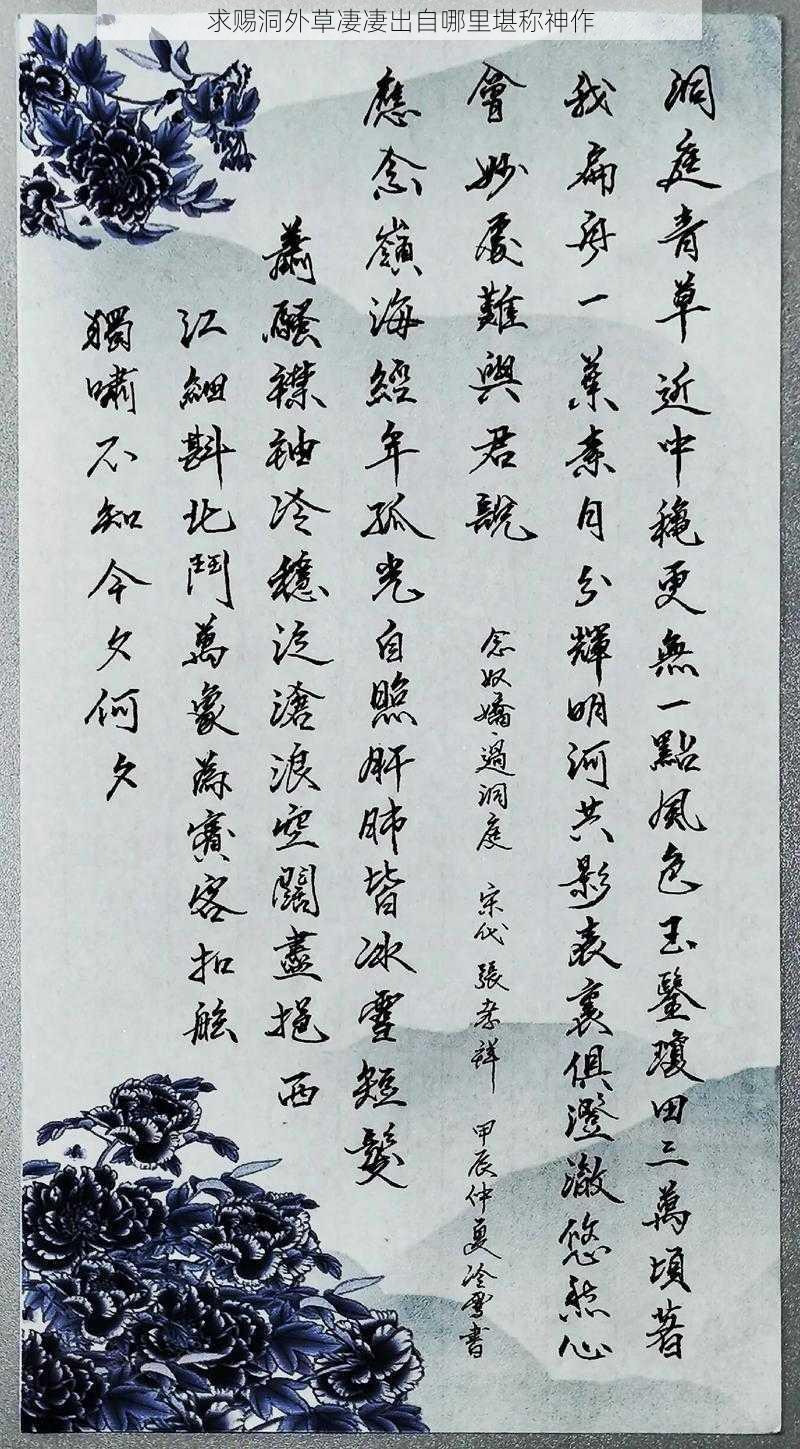 求赐洞外草凄凄出自哪里堪称神作
洞庭青草近中穐更無一點風色玉鑒瓊田三萬頃著
我扁舟一葉素月分輝明河共影表裏俱澄澈悠然心
會妙處難與君說
應念嶺海經年孤光自照肝肺皆冰雪短髮
蕭騷襟袖冷穩泛滄浪空闊盡挹西
江細斟北鬥萬象爲賓客扣舷
獨嘯不知今夕何夕
念奴嬌·過洞庭 宋代 張孝祥 甲辰仲夏冷雪書